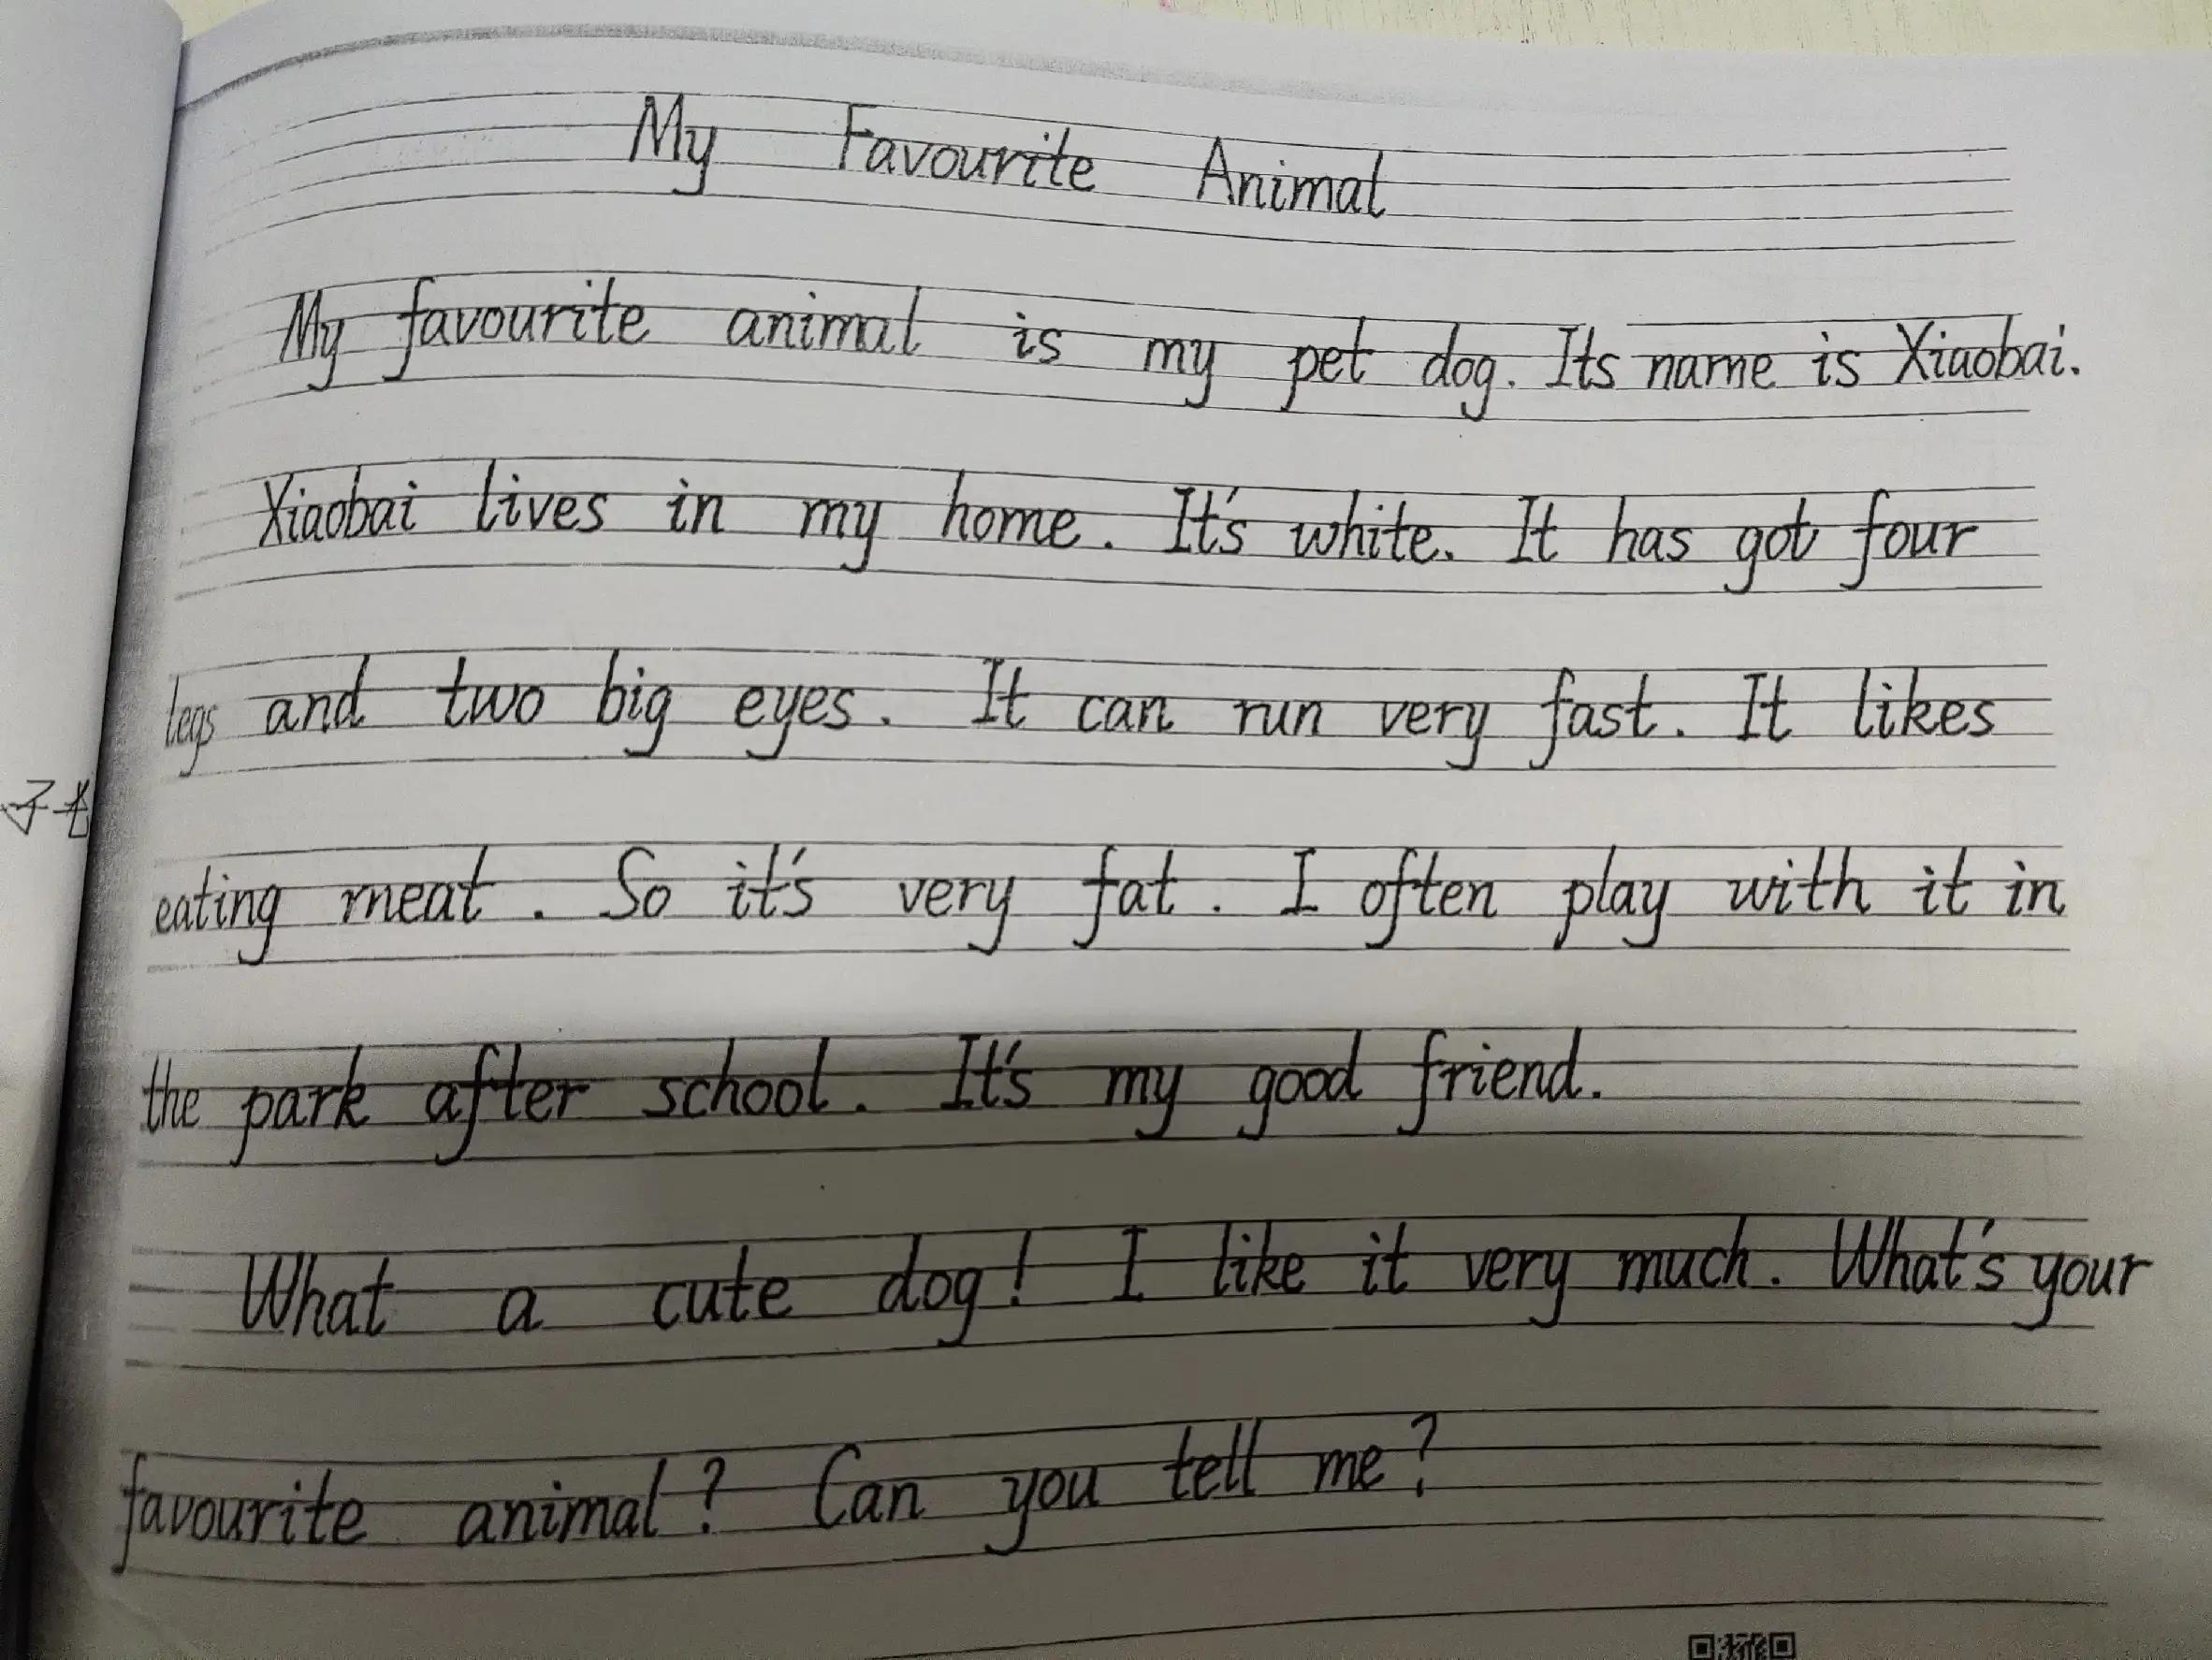 My Favourite Animal
My favourite animal is my pet dog. Its name is Xiaobai.
Xiaobai lives in my home. It's white. It has got four
legs and two big eyes. It can run very fast. It likes
eating meat. So it's very fat. I often play with it in
the park after school. It's my good friend.
What a cute dog! I like it very much. What's your
favourite animal? Can you tell me?